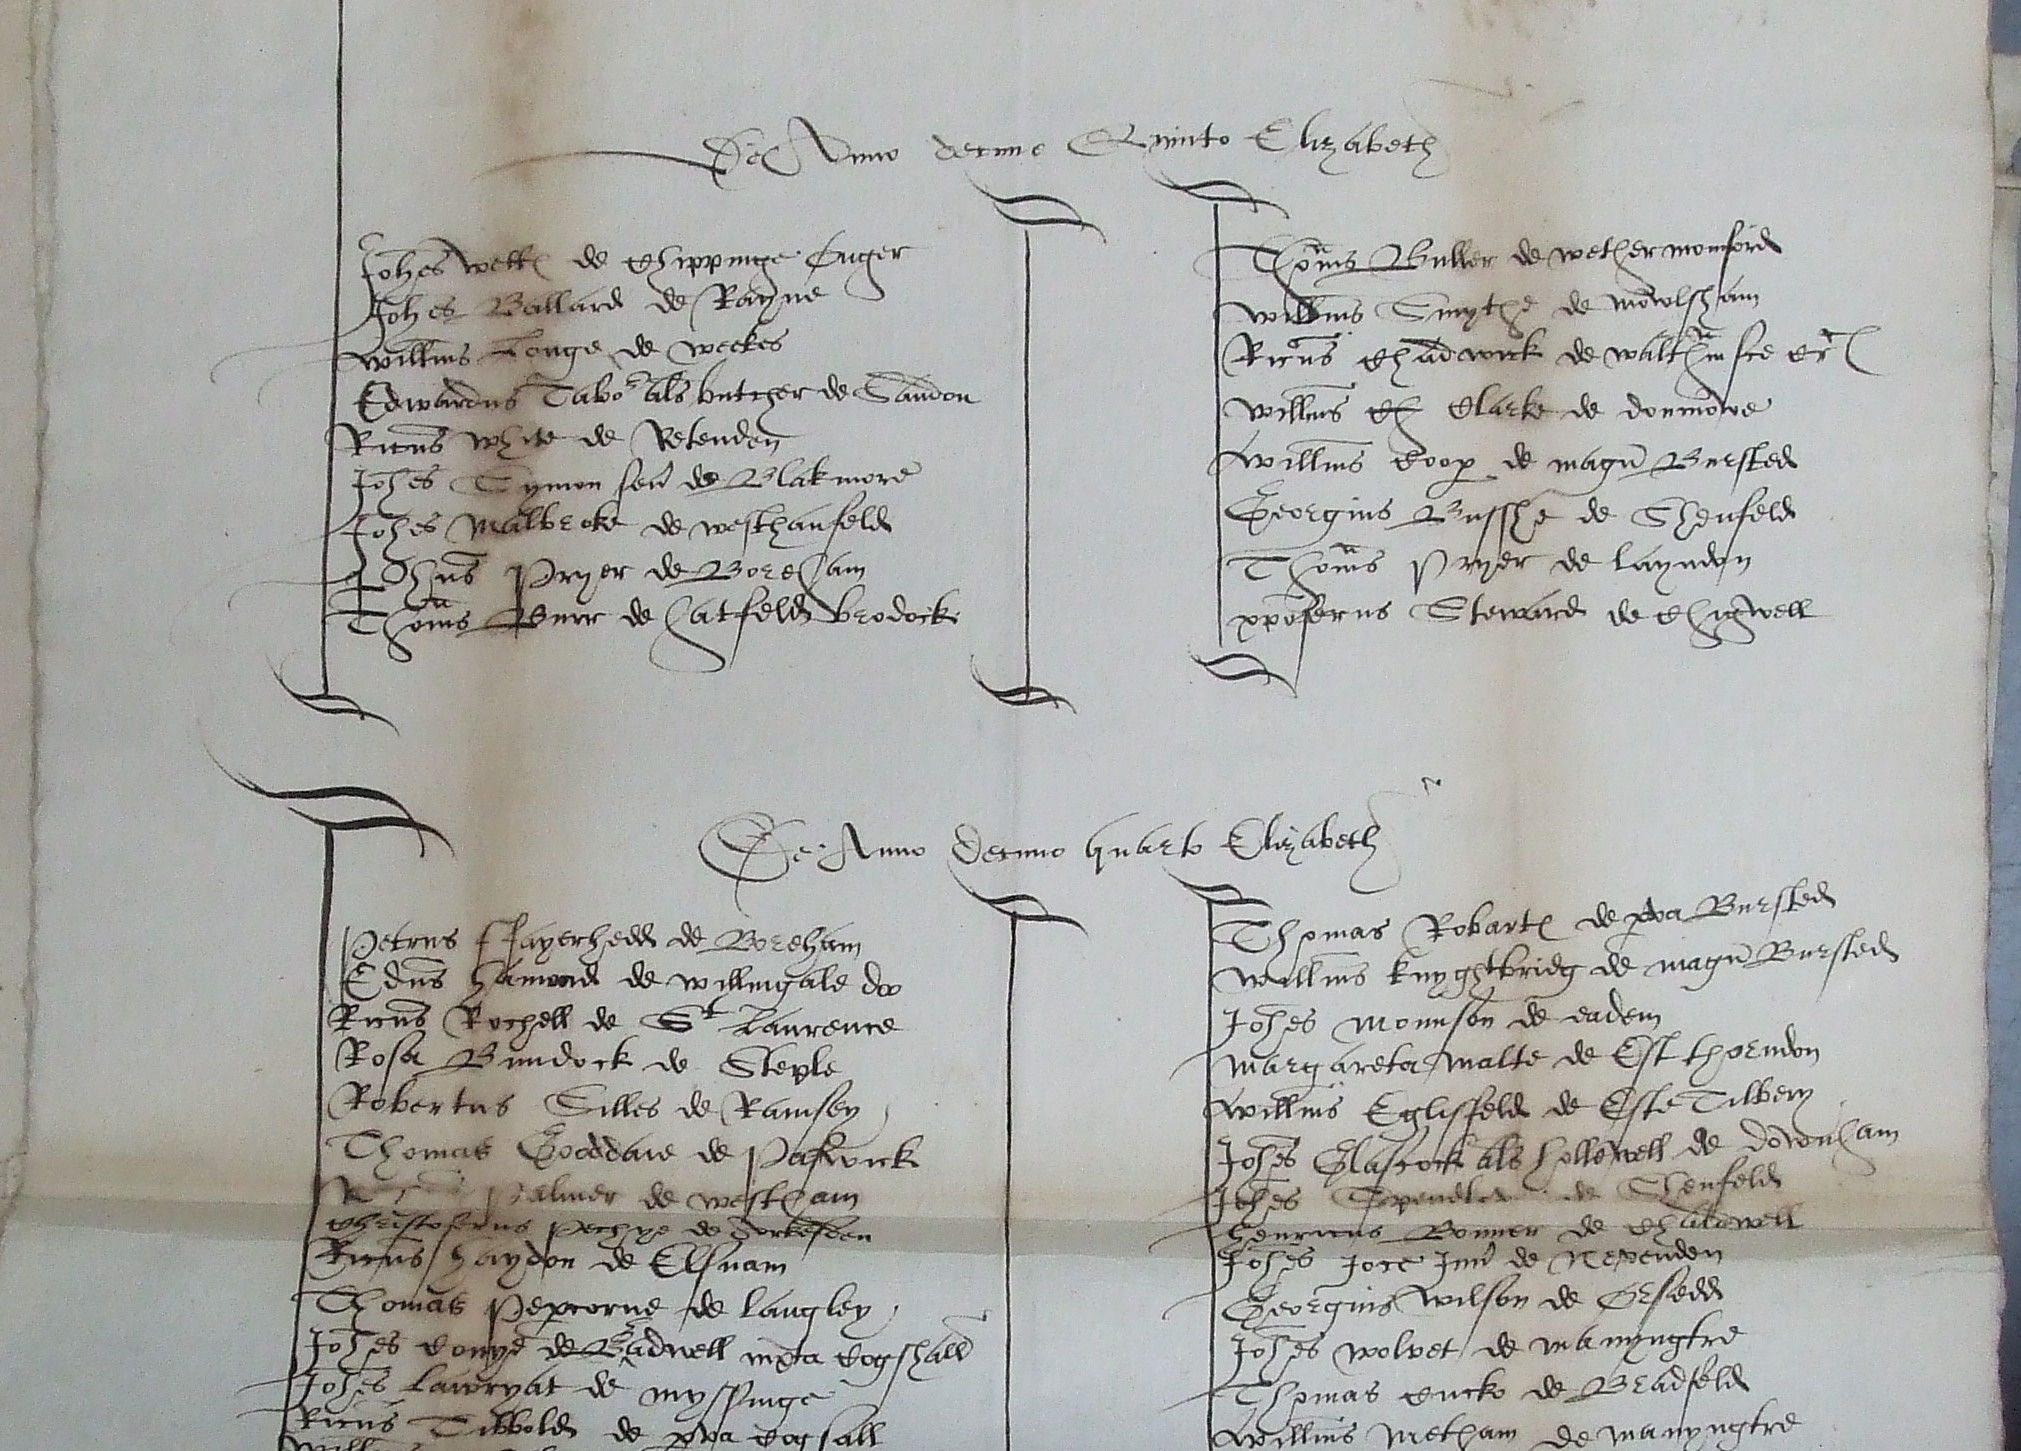 De Anno decimo Quinto Elizabeth
Johes Welles de Chippinge Onger
Johes Ballard de Rayne
Willms Longe de Weekes
Edwardus Tabor als butcher de Sandon
Ricus White de Retenden
Johes Symon sen de Blakmore
Johes Malbroke de Westhanfeld
Johns Pryer de Boreham
Thoms Burr de hatfeld brodock
Thoms Buller de Wethermomford
Willms Smythe de Mowlsham
Ricus Chadwick de Waltham sce Cr
Willms Clarke de donmowe
Willms Coop de magn Bursted
Georgius Busshe de Shenfeld
Thoms Pryer de Layndon
xpoferus Steward de Chigwell
De Anno decimo quarto Elizabeth
Petrus ffayerhedd de Boreham
Edus Hamond de Willingale doo
Ricus Rochell de St Laurence
Rosa Bundock de Steple
Robertus Silles de Ramsey
Thomas Gooddaie de Paswick
Palmer de Westham
Christoferus Pechye de
Ricus Haydon de Elsnam
Thomas Pepcorne de Langley
Johes Conye de Bradwell iuxta Cogshall
Johes Lawryat de Myssinge
Ricus Tibbold de pva Cogsall
Thomas Robartes de pva Bursted
Willms Knyghtbridg de magn Bursted
Johes Mounson de eadem
Margareta Malte de Est thorndon
Willms Eglisfeld de Este Tilbery
Johes Glascock als hollowell de downham
Johes de Shenfeld
Henricus Bonner de Chaldwell
Johes Joce Jun de Nevenden
Georgius Wilson de Orsedd
Johes Wolvet de Manyngtre
Thomas Cucko de Bradfeld
Willms Metham de Manyngtre